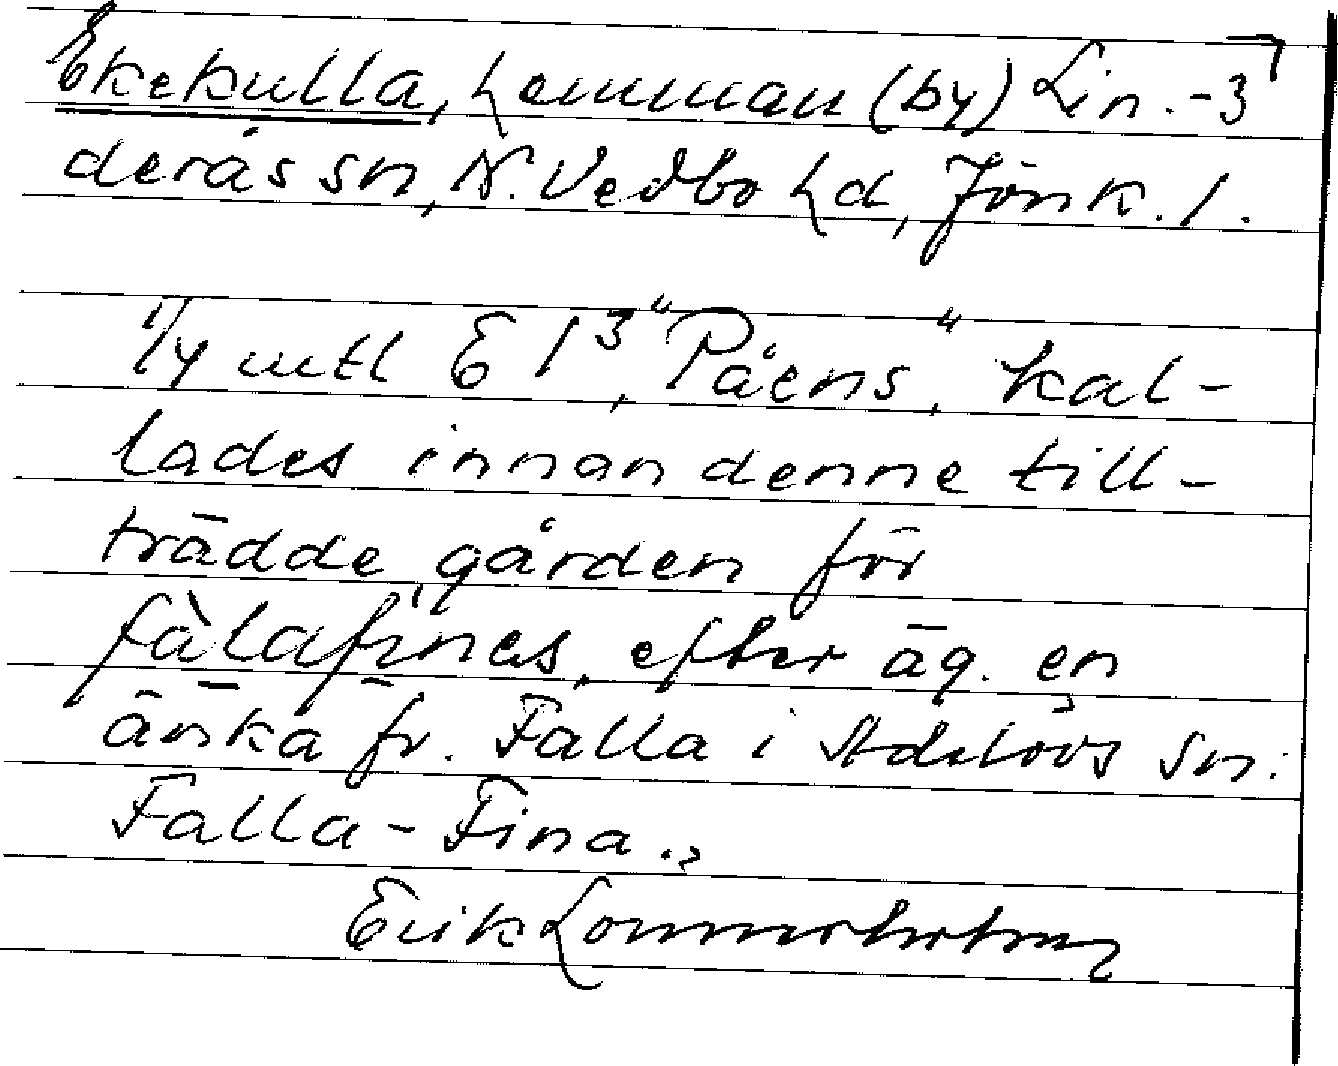 Ekekulla, hemman (by) Lin.-3
derås sn, N. Vedbo hd, Jönk. l.
1/4 mtl E 1³, "Påens," kal-
lades innan denne till-
trädde gården för
fàlafīnes, efter äg. en
änka fr. Falla i Adelövs sn:
Falla-Fina.
Erik